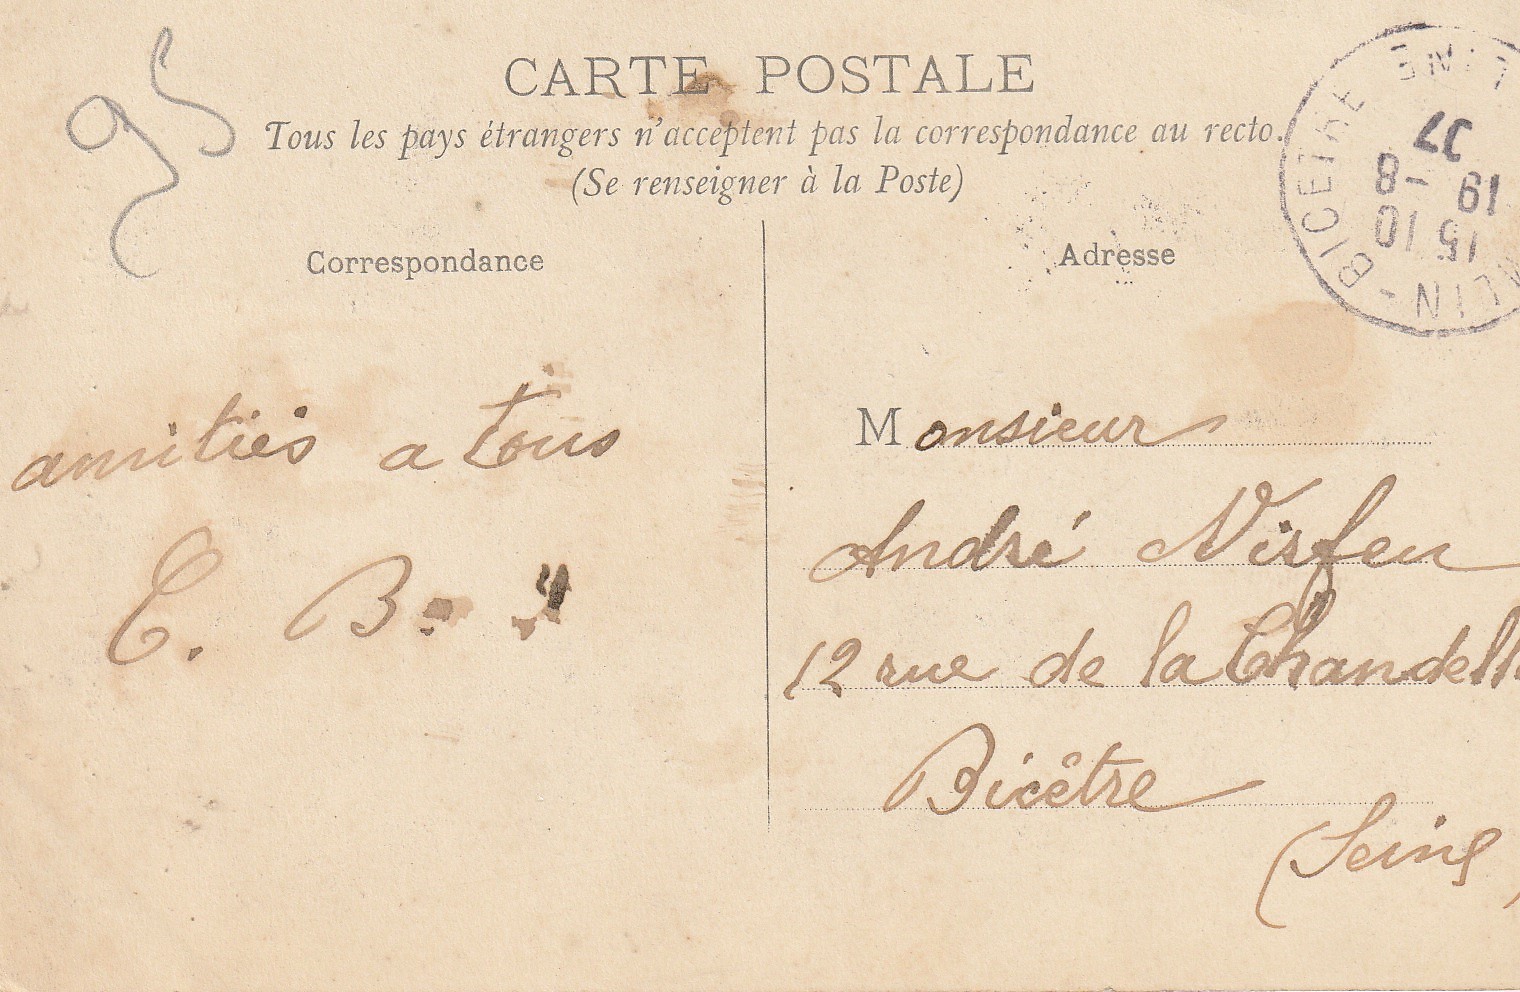 95
CARTE POSTALE
Tous les pays étrangers n'acceptent pas la correspondance au recto.
(Se renseigner à la Poste)
Correspondance
Adresse
BICETRE
15 10
19 -8
37
amitiés a tous
E. B.
Monsieur
André Nisfeu
12 rue de la Chandell
Bicêtre
(Seine)